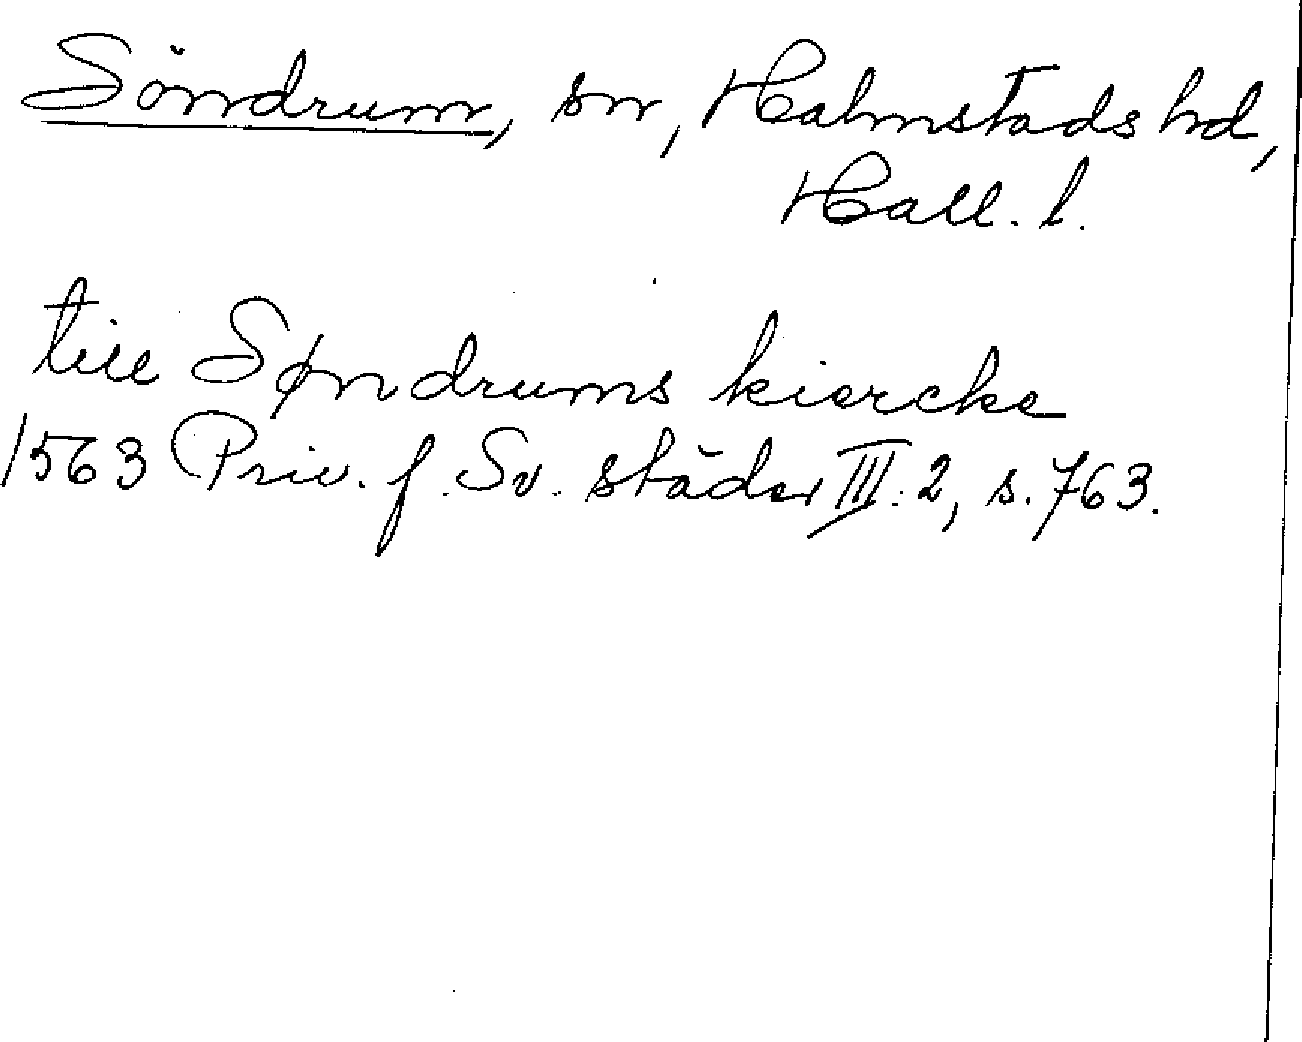 Söndrum, sn, Halmstads hd,
Hall. l.
till Søndrums kiercke
1563 Priv. f. Sv. städer III:2, s. 763.